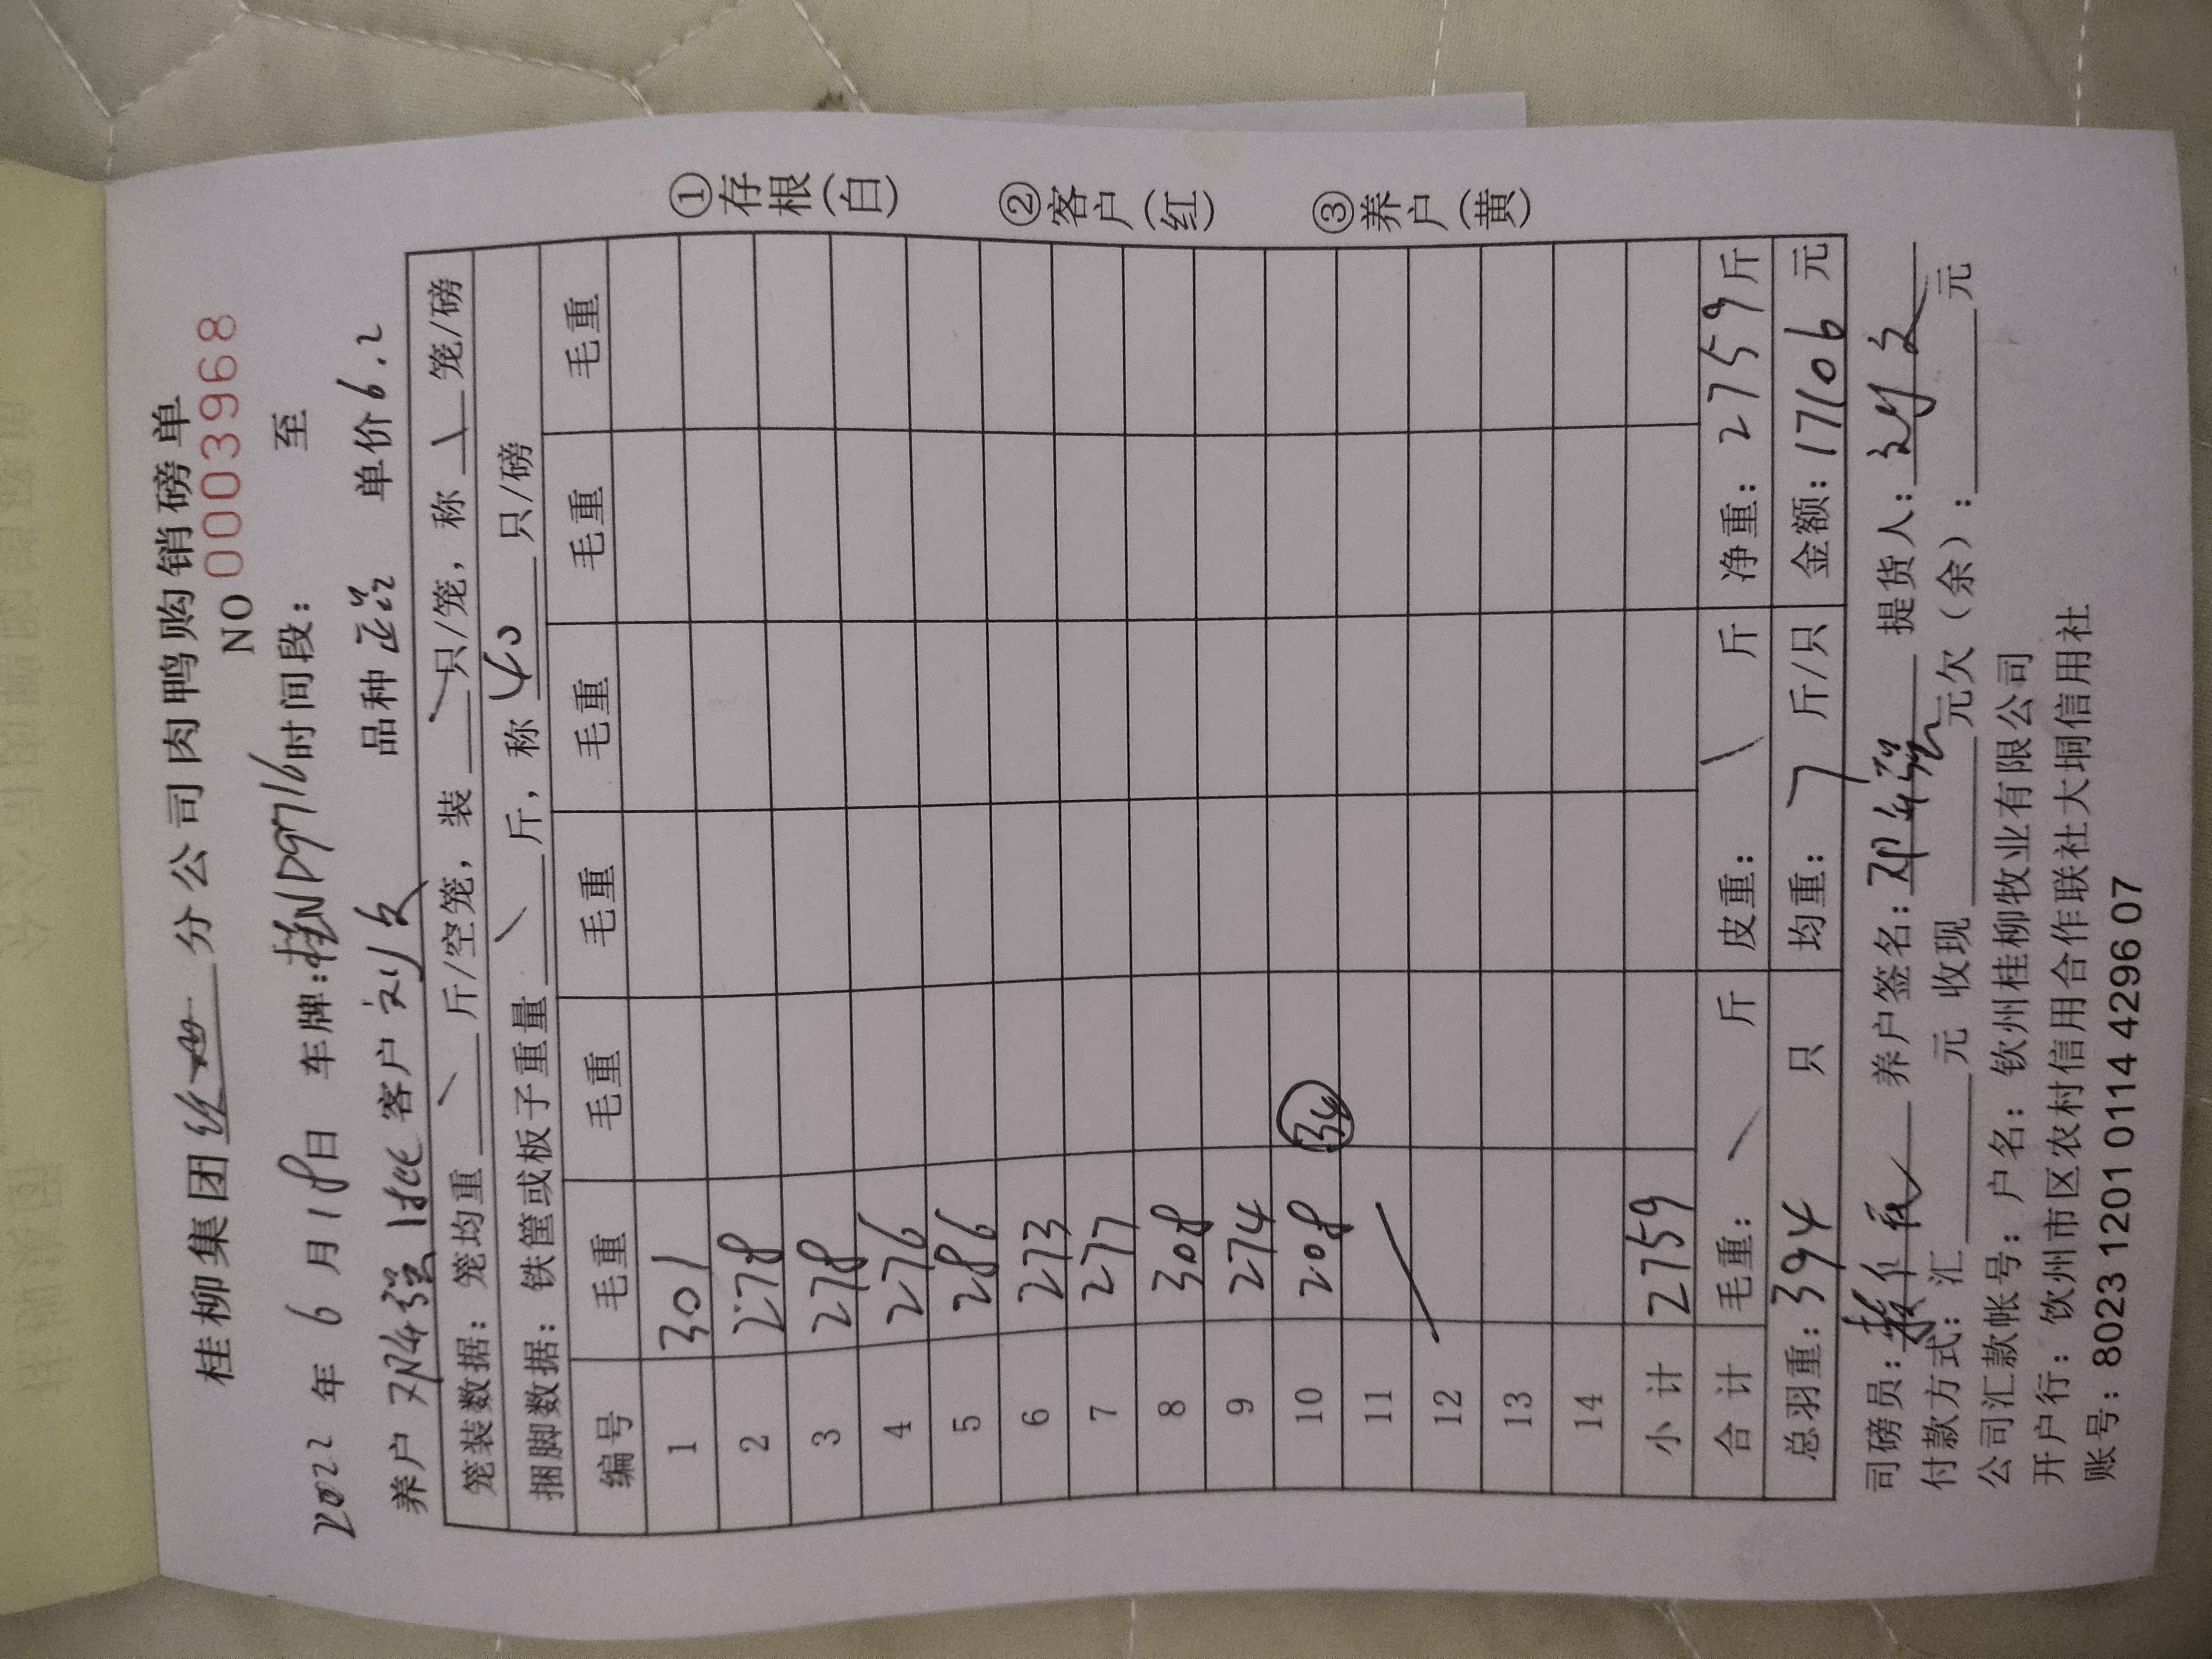 桂柳集团 分公司肉鸭购销磅单
NO 0003968
2022 年 6 月 18 日 车牌:桂ND9716 时间段: 至
养户 邓年强 客户 刘文 品种 正品 单价 6.2
笼装数据:笼均重 / 斤/空笼,装 / 只/笼,称 \ 笼/磅
捆脚数据:铁筐或板子重量 \ 斤,称 40 只/磅
编号 毛重 毛重 毛重 毛重 毛重 毛重
1 301
2 278
3 278
4 276
5 286
6 273
7 277
8 308
9 274
10 208 34
11
12
13
14
小 计 2759
合 计 毛重: / 斤 皮重: \ 斤 净重: 2759 斤
总羽重: 394 只 均重: 7 斤/只 金额: 17106 元
司磅员: 养户签名: 邓年强 提货人: 刘文
付款方式:汇 元 收现 元欠(余): 元
公司汇款帐号:户名: 钦州桂柳牧业有限公司
开户行: 钦州市区农村信用合作联社大垌信用社
账号: 8023 1201 0114 4296 07
①存根(白)
②客户(红)
③养户(黄)